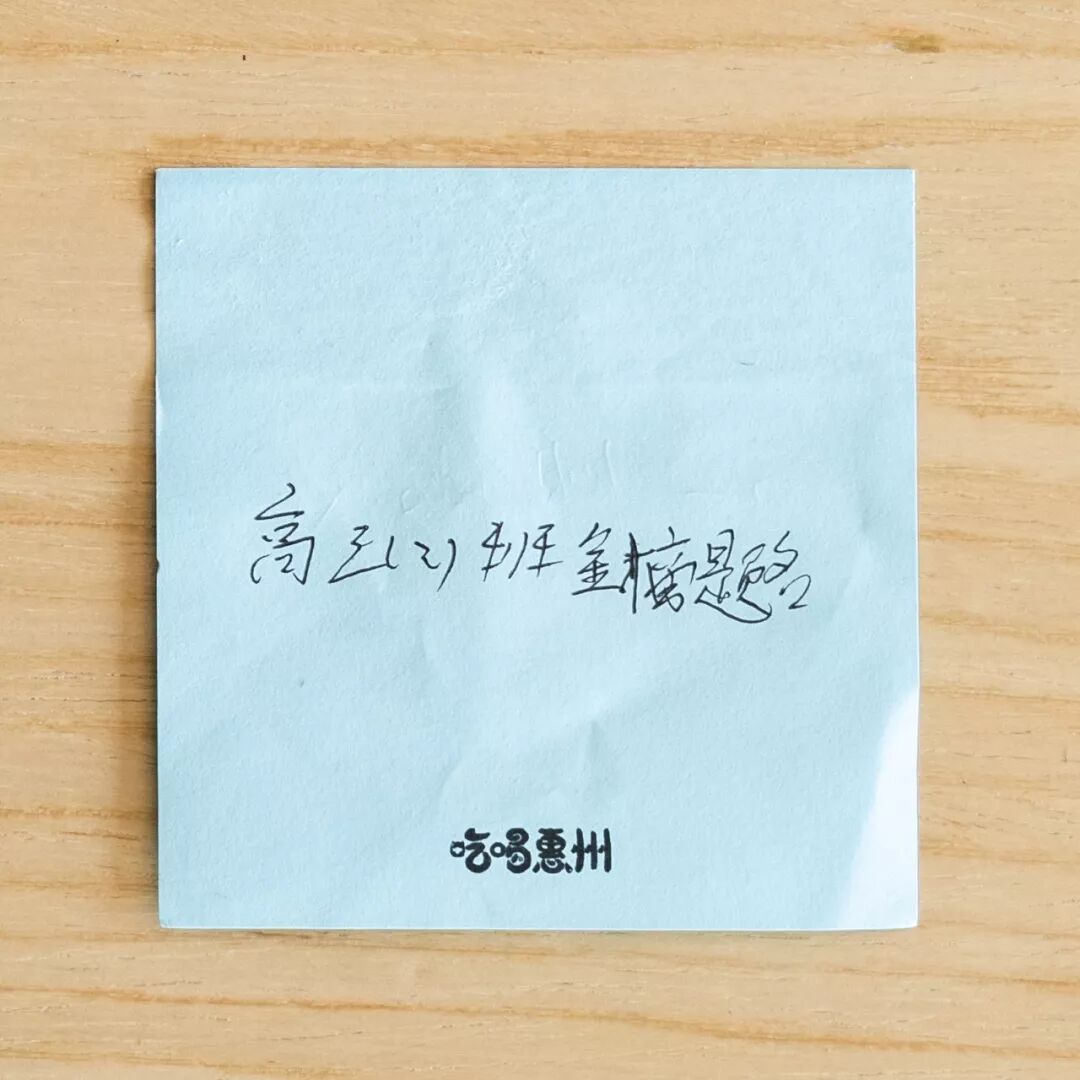 高三(2)班金榜题名
吃喝惠州